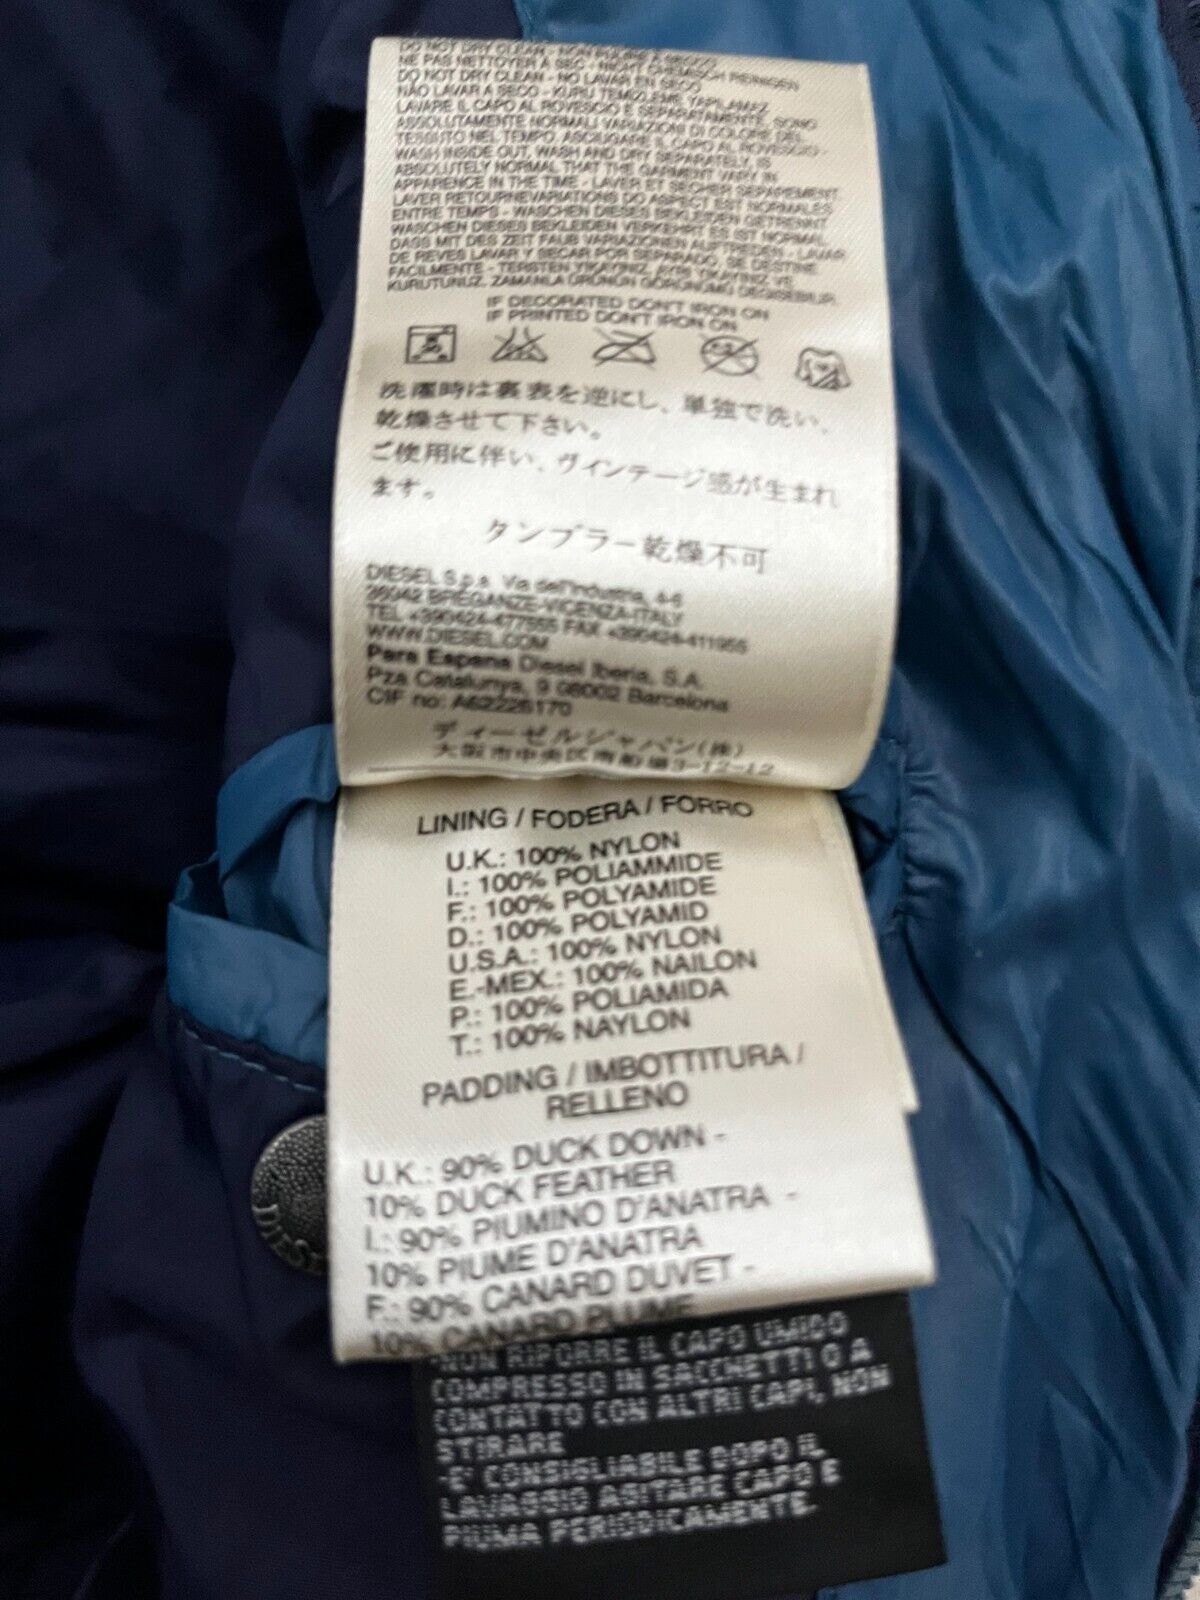 DO NOT DRY CLEAN - NON PULIRE A SECCO
NE PAS NETTOYER A SEC - NICHT CHEMISCH REINIGEN
DO NOT DRY CLEAN - NO LAVAR EN SECO
NÃO LAVAR A SECO - KURU TEMIZLEME YAPILAMAZ
LAVARE IL CAPO AL ROVESCIO E SEPARATAMENTE. SONO
ASSOLUTAMENTE NORMALI VARIAZIONI DI COLORE DEL
TESSUTO NEL TEMPO. ASCIUGARE IL CAPO AL ROVESCIO -
WASH INSIDE OUT, WASH AND DRY SEPARATELY, IS
ABSOLUTELY NORMAL THAT THE GARMENT VARY IN
APPARENCE IN THE TIME - LAVER ET SECHER SEPAREMENT
LAVER RETOURNEVARIATIONS DO ASPECT EST NORMALES
ENTRE TEMPS - WASCHEN DIESES BEKLEIDEN GETRENNT
WASCHEN DIESES BEKLEIDEN VERKEHRT ES IST NORMAL,
DASS MIT DES ZEIT FAUB VARIAZIONEN AUFTREDEN - LAVAR
DE REVES LAVAR Y SECAR POR SEPARADO, SE DESTINE
FACILMENTE - TERSTEN YIKAYINIZ, AYRI YIKAYINIZ VE
KURUTUNUZ. ZAMANLA ÜRÜNÜN GÖRÜNÜMÜ DEGISEBILIR
IF DECORATED DON'T IRON ON
IF PRINTED DON'T IRON ON
洗濯時は裏表を逆にし、単独で洗い、
乾燥させて下さい。
ご使用に伴い、ヴィンテージ感が生まれ
ます。
タンブラー乾燥不可
DIESEL S.p.a. Via dell'Industria, 4-6
36042 BREGANZE-VICENZA-ITALY
TEL +390424-477555 FAX +390424-411955
WWW.DIESEL.COM
Para Espana Diesel Iberia, S.A.
Pza Catalunya, 9 08002 Barcelona
CIF no: A62226170
ディーゼルジャパン(株)
大阪市中央区南船場3-12-12
LINING / FODERA / FORRO
U.K.: 100% NYLON
I.: 100% POLIAMMIDE
F.: 100% POLYAMIDE
D.: 100% POLYAMID
U.S.A.: 100% NYLON
E.-MEX.: 100% NAILON
P.: 100% POLIAMIDA
T.: 100% NAYLON
PADDING / IMBOTTITURA /
RELLENO
U.K.: 90% DUCK DOWN -
10% DUCK FEATHER
I.: 90% PIUMINO D'ANATRA -
10% PIUME D'ANATRA
F.: 90% CANARD DUVET -
10% CANARD PLUME
-NON RIPORRE IL CAPO UMIDO
COMPRESSO IN SACCHETTI O A
CONTATTO CON ALTRI CAPI, NON
STIRARE
-E' CONSIGLIABILE DOPO IL
LAVAGGIO AGITARE CAPO E
PIUMA PERIODICAMENTE.